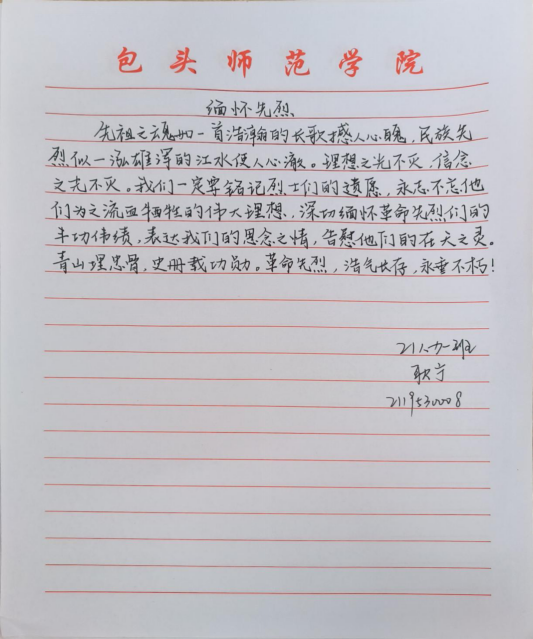 包头师范学院
缅怀先烈、
先祖之魂如一首浩瀚的长歌撼人心魄，民族先
烈似一泓雄浑的江水使人心澈。理想之光不灭，信念
之光不灭。我们一定要铭记烈士们的遗愿，永志不忘他
们为之流血牺牲的伟大理想，深切缅怀革命先烈们的
丰功伟绩，表达我们的思念之情，告慰他们的在天之灵。
青山理忠骨，史册载功勋。革命先烈，浩气长存，永垂不朽！
班
宁
2119530008